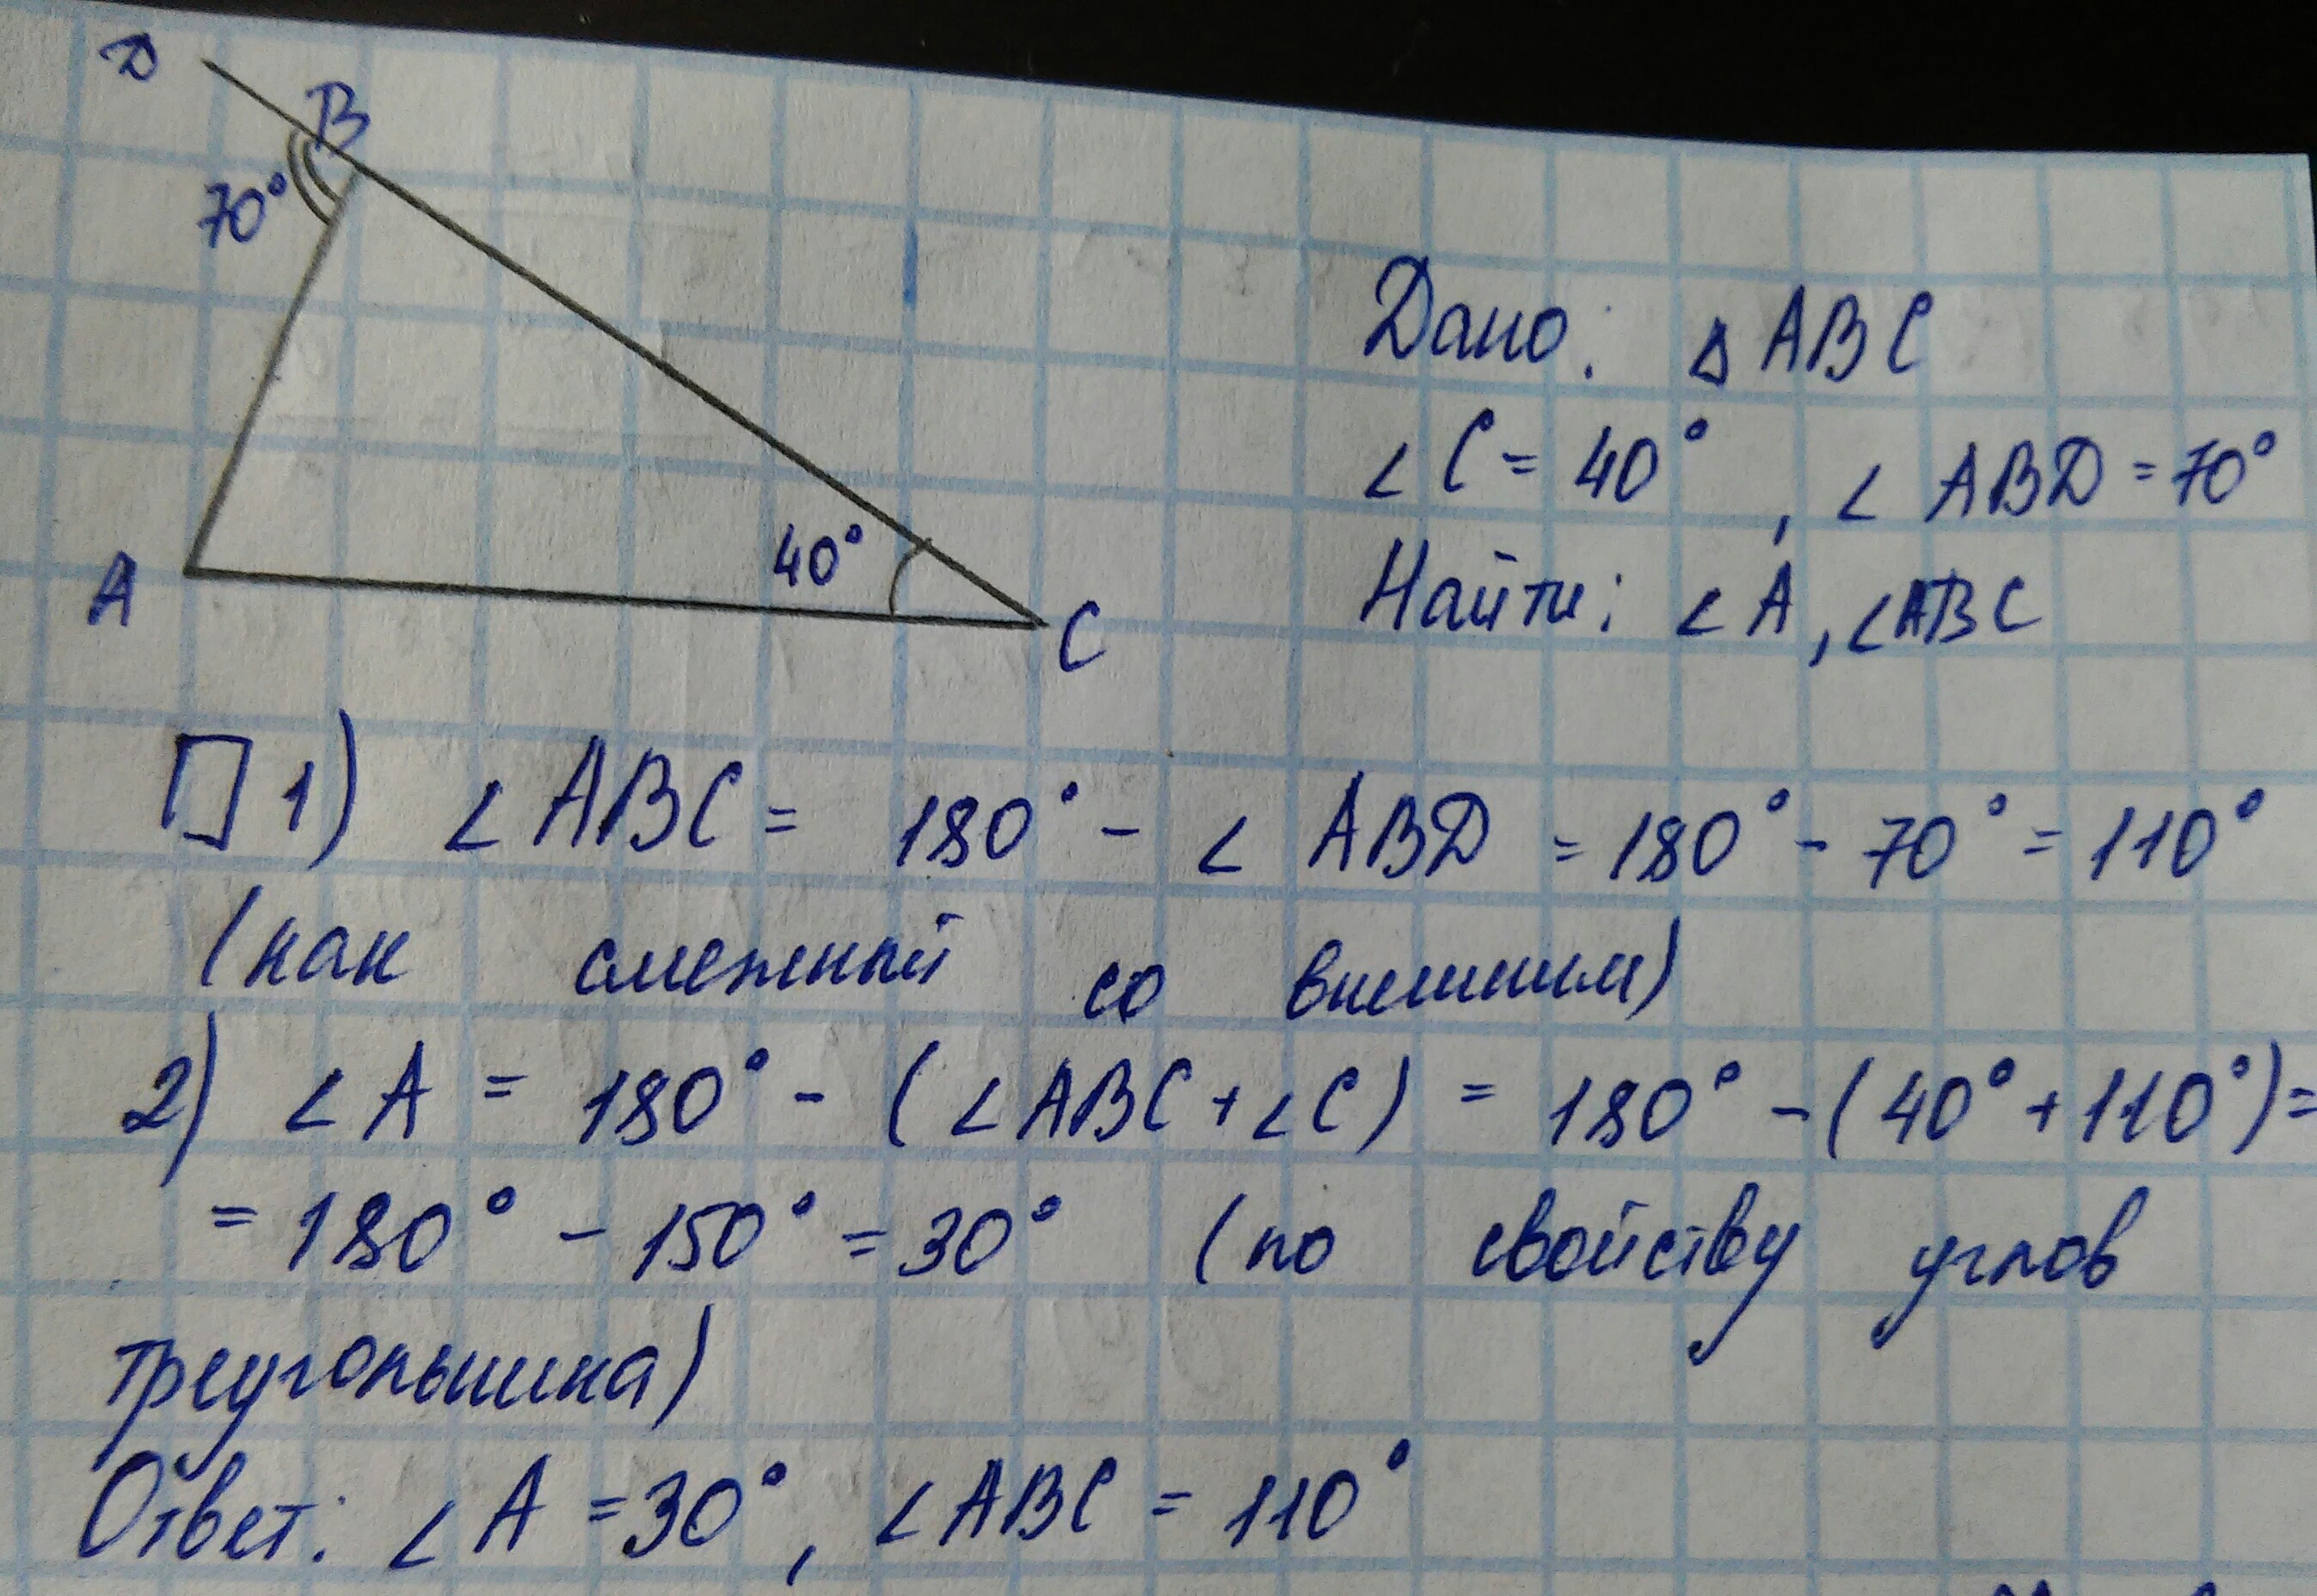 D
B
70°
40°
A
C
Дано: △ABC
∠C = 40°, ∠ABD = 70°
Найти: ∠A, ∠ABC
1) ∠ABC = 180° - ∠ABD = 180° - 70° = 110°
(как смежный со внешним)
2) ∠A = 180° - (∠ABC + ∠C) = 180° - (40° + 110°) =
= 180° - 150° = 30° (по свойству углов
треугольника)
Ответ: ∠A = 30°, ∠ABC = 110°